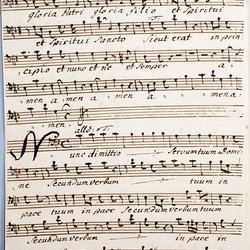 gloria Patri gloria filio et Spiritui
et Spiritui Sancto Sicut erat in prin
cipio et nunc et ñc et Semper a
men a men a men a mena
men.
allo:
Nunc dimittis Servum tuum Domi
ne Secundum verbum tuum in
pace tuum in pace Secundum verbum tuum
Secundum verbum in pace in pace